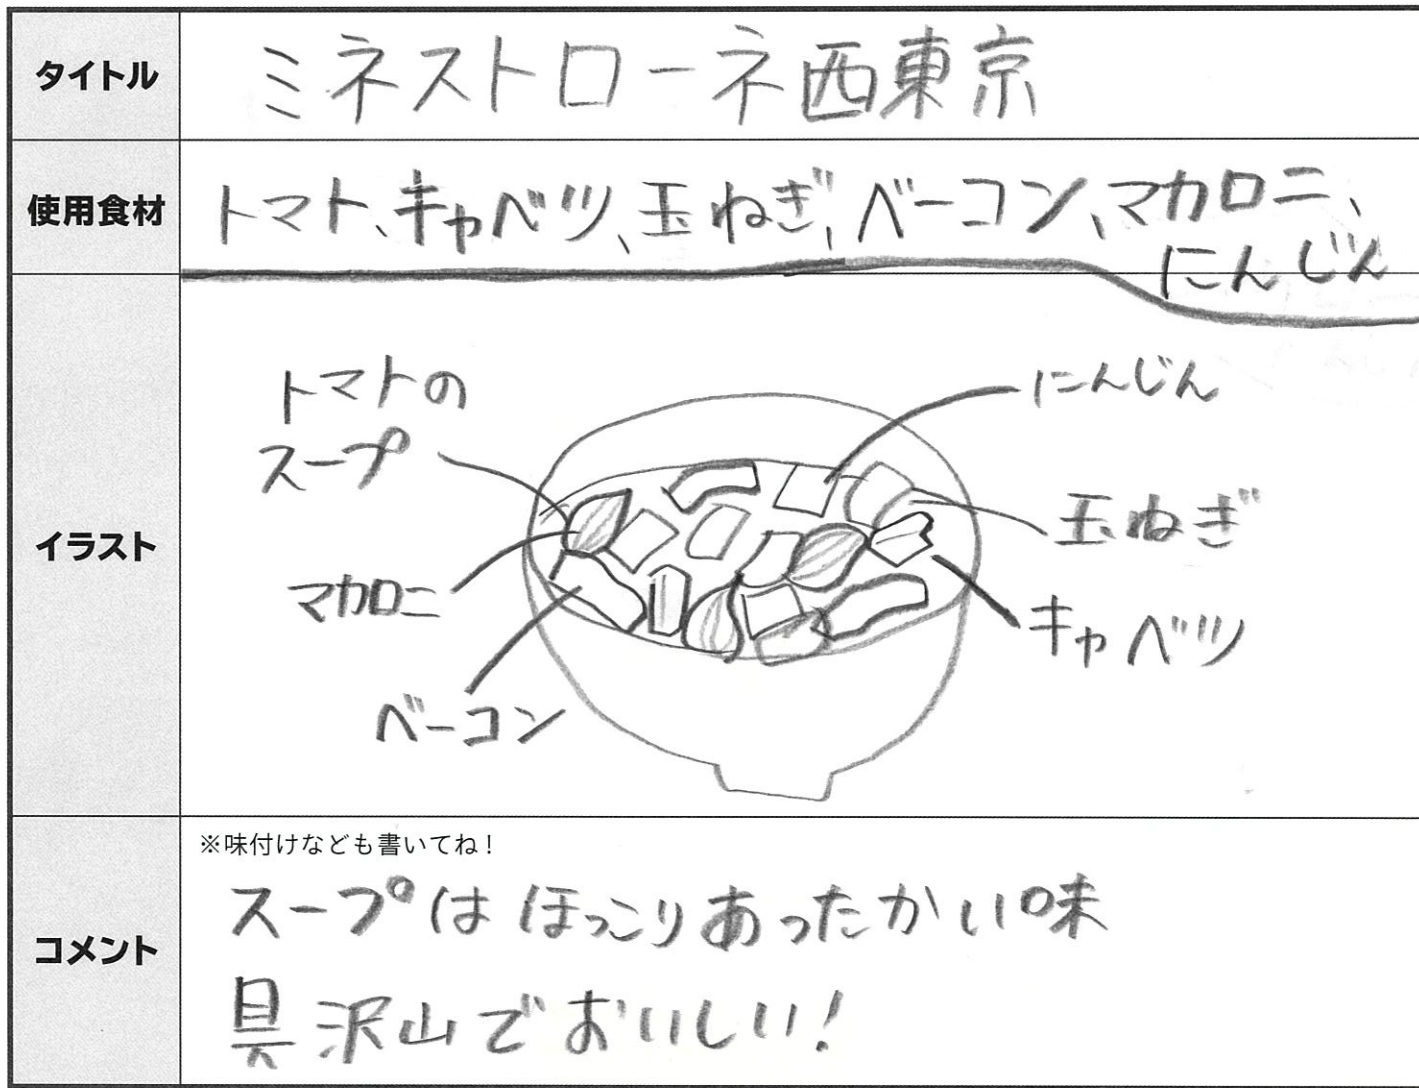 タイトル
ミネストローネ西東京
使用食材
トマト、キャベツ、玉ねぎ、ベーコン、マカロニ、
にんじん
イラスト
トマトの
スープ
マカロニ
ベーコン
にんじん
玉ねぎ
キャベツ
コメント
※味付けなども書いてね!
スープはほっこりあったかい味
具沢山でおいしい!